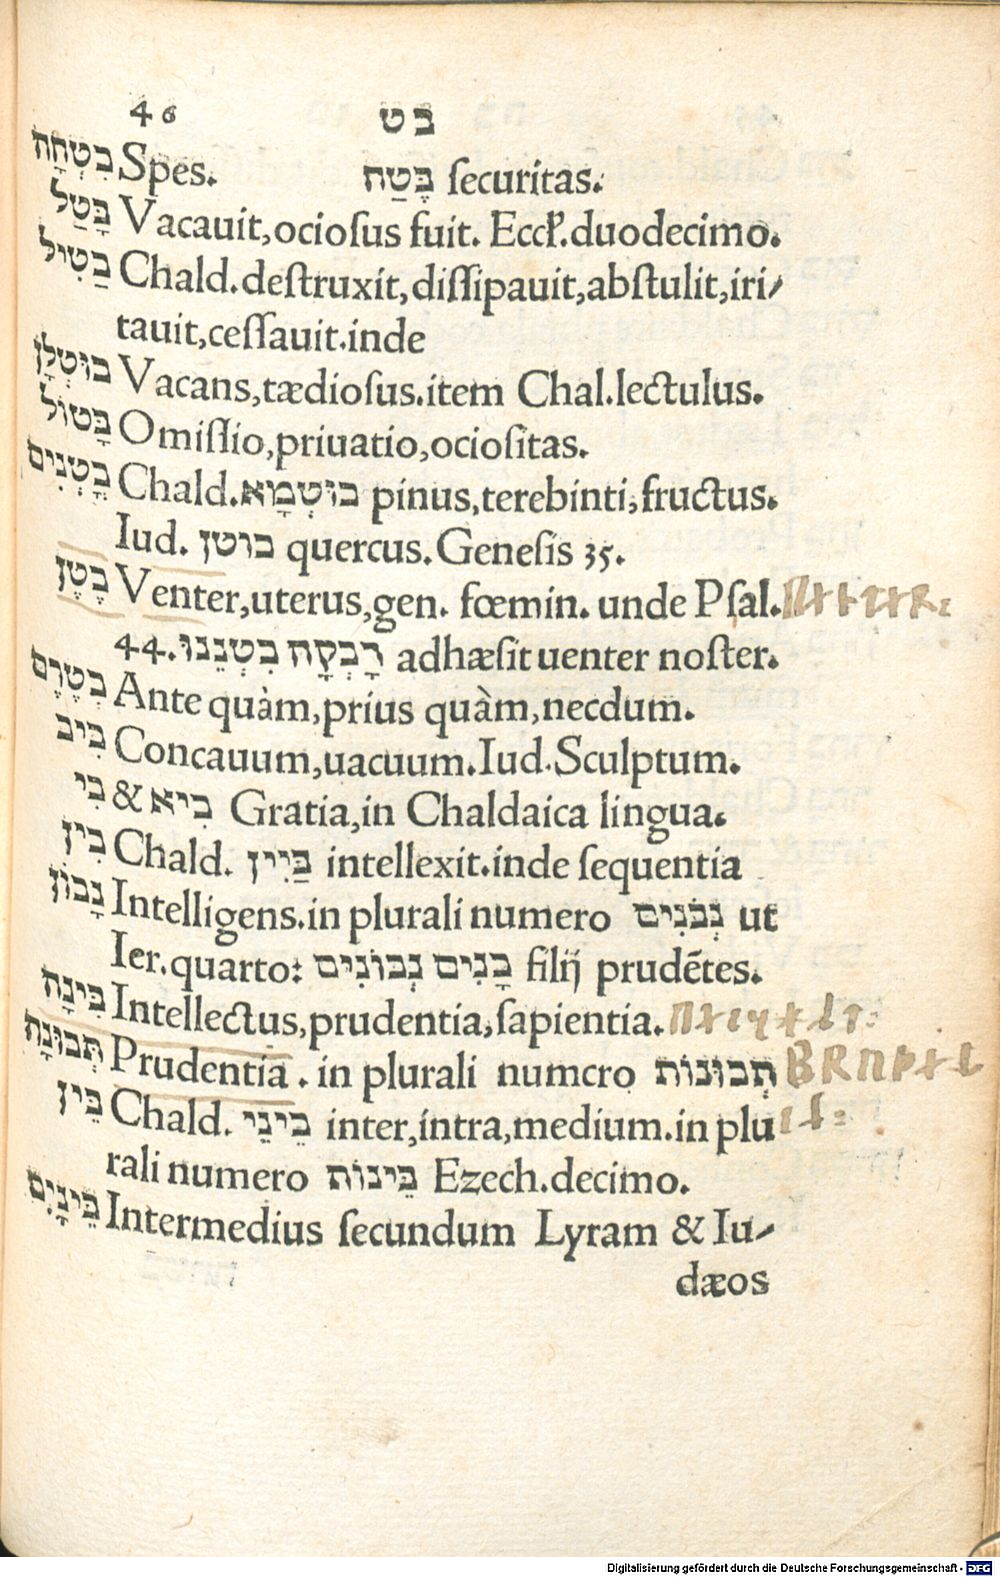 46 בט
בִטְחָה Spes. בֶּטַח ſecuritas.
בָּטַל Vacauit,ocioſus fuit. Eccľ.duodecimo.
בַּטִּיל Chald.deſtruxit,diſſipauit,abſtulit,iri⸗
tauit,ceſſauit.inde
בוּטְלָן Vacans,tædioſus.item Chal.lectulus.
בָּטוֹל Omiſſio,priuatio,ocioſitas.
בָּטְנִים Chald.בּוּטְמָא pinus,terebinti,fructus.
Iud. בוטן quercus.Geneſis 35.
בֶּטֶן Venter,uterus,gen. fœmin. unde Pſal.
44.רָבְקָה בִטְנֵנוּ adhæſit uenter noſter.
בְּטֶרֶם Ante quàm,prius quàm,necdum.
בִּיב Concauum,uacuum.Iud.Sculptum.
בִּי & בִּיא Gratia,in Chaldaica lingua.
בִּין Chald. בַּיִין intellexit.inde ſequentia
נָבוֹן Intelligens.in plurali numero נְבֹנִים ut
Ier.quarto: בָנִים נְבוֹנִים filij prudẽtes.
בִּינָה Intellectus,prudentia,ſapientia.
תְּבוּנָה Prudentia.in plurali numero תְּבוּנוֹת
בֵּין Chald. בֵּינֵי inter,intra,medium.in plu
rali numero בֵּינוֹת Ezech.decimo.
בֵּינָיִם Intermedius ſecundum Lyram & Iu⸗
dæos
Digitalisierung gefördert durch die Deutsche Forschungsgemeinschaft - DFG